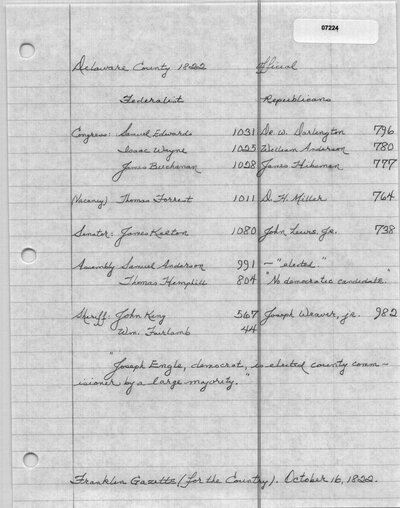 07224
Delaware County 1822 Official
Federalist Republicans
Congress: Samuel Edwards 1031 Dr. W. Darlington 796
Isaac Wayne 1025 William Anderson 780
James Buchanan 1028 James Hindman 777
(Vacancy) Thomas Forrest 1011 D. H. Miller 764
Senator: James Kelton 1080 John Lewis, Jr. 738
Assembly Samuel Anderson 991 — "elected."
Thomas Hemphill 804 "No democratic candidate."
Sheriff: John King 567 Joseph Weaver, jr. 982
Wm. Fairlamb 44
"Joseph Engle, democrat, is elected county comm-
isioner by a large majority."
Franklin Gazette (for the Country). October 16, 1822.